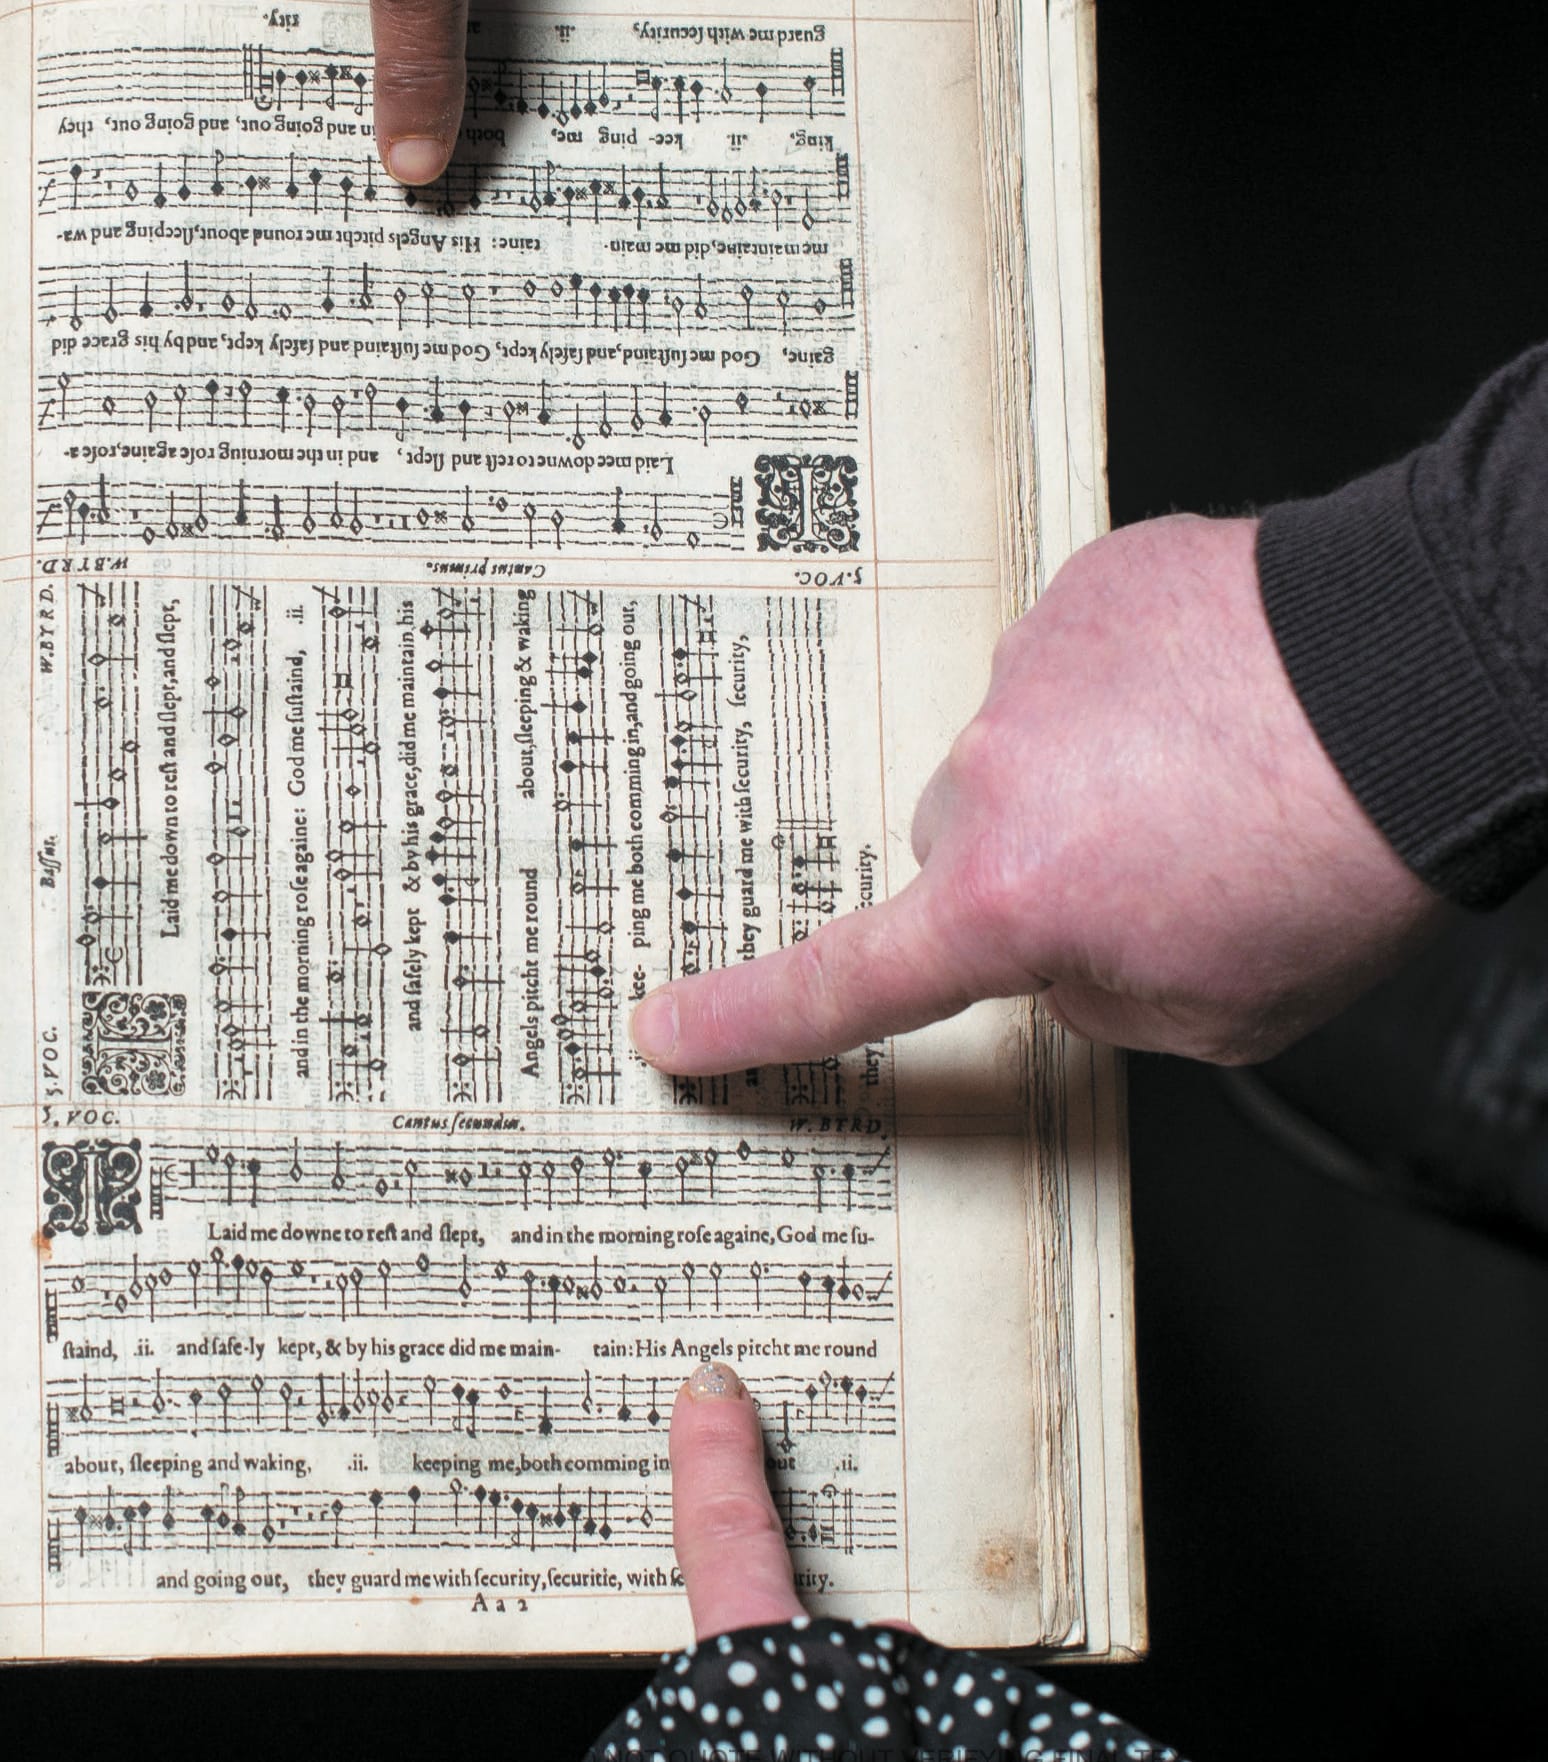 5.VOC. Cantus primus. W.BYRD.
I Laid mee downe to reſt and ſlept, and in the morniug roſe againe,roſe a-
gaine, God me ſuſtaind,and ſafely kept, God me ſuſtaind and ſafely kept,and by his grace did
me maintaine,did me main- taine: His Angels pitcht me round about,ſleeping and wa-
king, .ii. kee- ping me, both in and going out, and going out, they
guard me with ſecurity, .ii. rity.
5.VOC. Baſſus. W.BYRD.
I Laid me down to reſt and ſlept,and ſlept,
and in the morning roſe againe: God me ſuſtaind, .ii.
and ſafely kept & by his grace,did me maintain his
Angels pitcht me round about,ſleeping & waking
kee- ping me both comming in,and going out,
they guard me with ſecurity, ſecurity,
they ecurity.
5. VOC. Cantus ſecundus. W. BYRD.
I Laid me downe to reſt and ſlept, and in the morning roſe againe,God me ſu-
ſtaind, .ii. and ſafe-ly kept, & by his grace did me main- tain:His Angels pitcht me round
about, ſleeping and waking, .ii. keeping me,both comming in out .ii.
and going out, they guard me with ſecurity,ſecuritie, with rity.
A a 2
NOT QUOTE WITHOUT VERIFYING FINAL